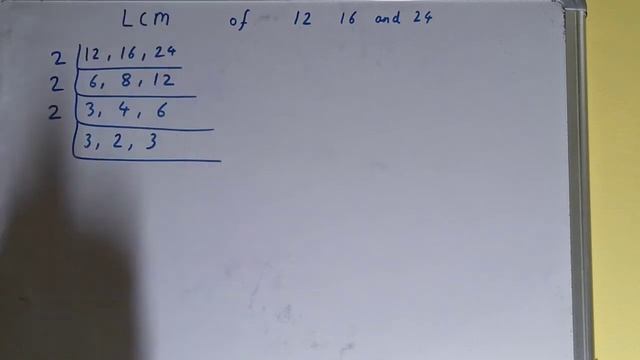 LCM of 12 16 and 24
2 12, 16, 24
2 6, 8, 12
2 3, 4, 6
3, 2, 3